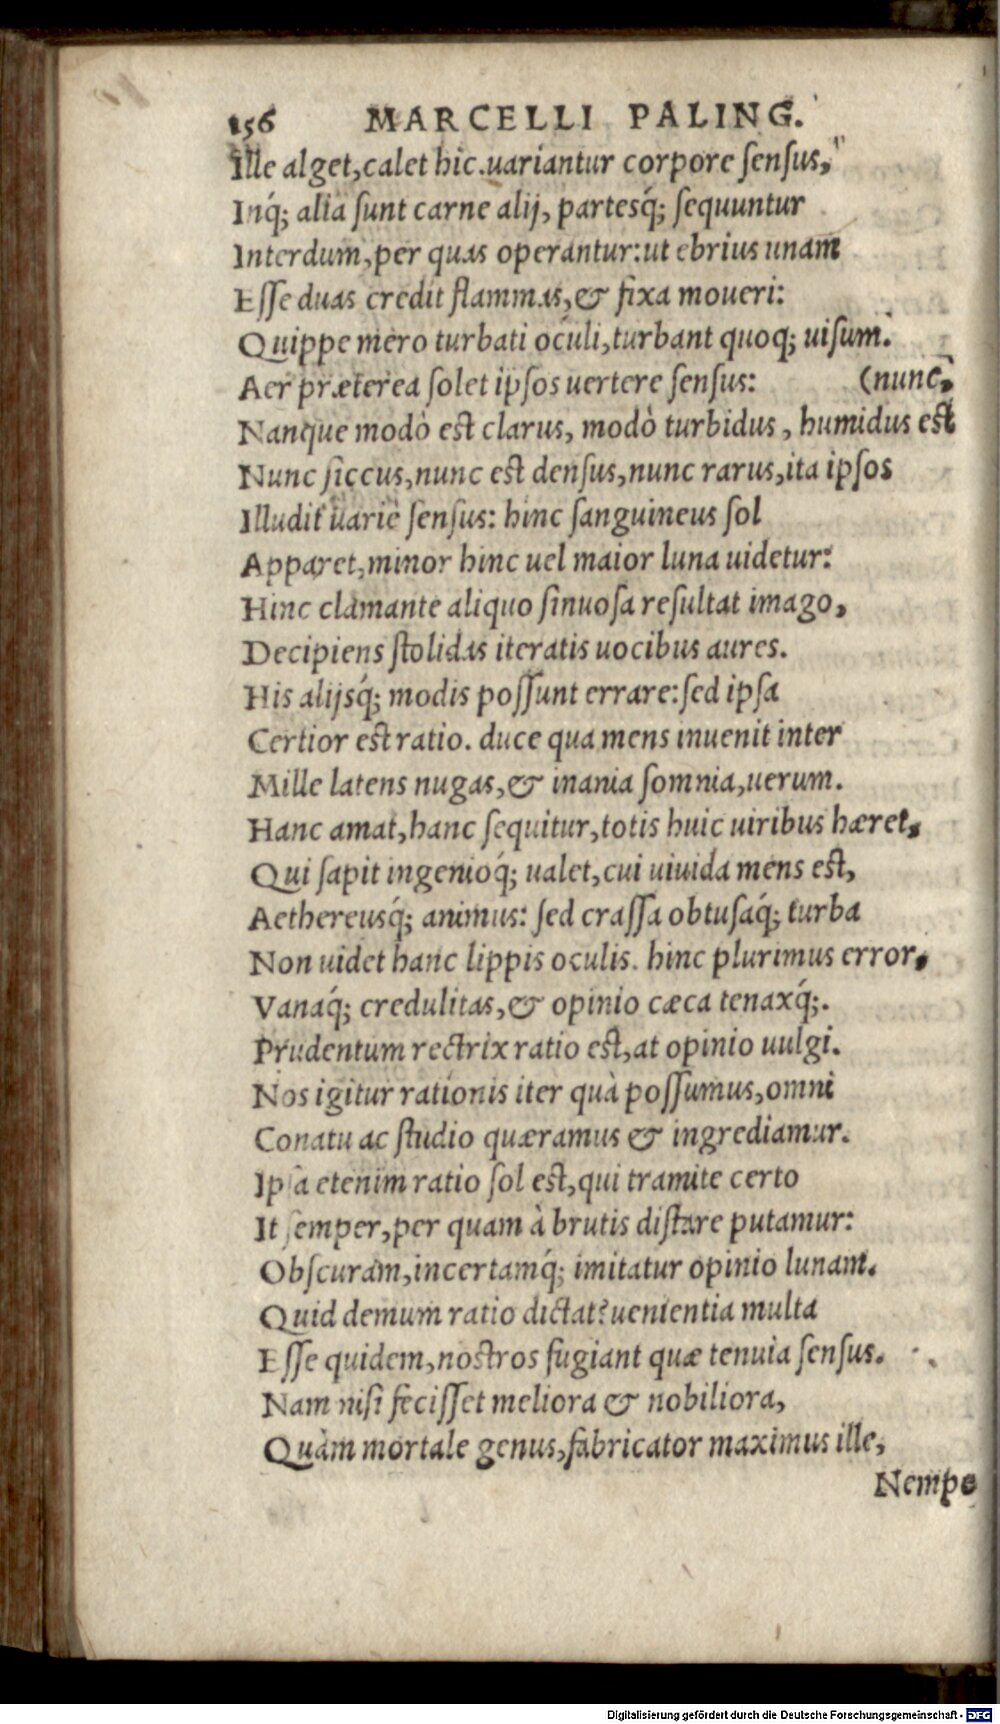 156 MARCELLI PALING.
Ille alget, calet hic. uariantur corpore sensus,
Inq́; alia sunt carne alij, partesq́; sequuntur
Interdum, per quas operantur: ut ebrius unam
Esse duas credit flammas, & fixa moueri:
Quippe mero turbati oculi, turbant quoq; uisum.
Aer præterea solet ipsos uertere sensus: (nunc,
Nanque modò est clarus, modò turbidus, humidus est
Nunc siccus, nunc est densus, nunc rarus, ita ipsos
Illudit uariè sensus: hinc sanguineus sol
Apparet, minor hinc uel maior luna uidetur:
Hinc clamante aliquo sinuosa resultat imago,
Decipiens stolidas iteratis uocibus aures.
His alijsq́; modis possunt errare: sed ipsa
Certior est ratio. duce qua mens inuenit inter
Mille latens nugas, & inania somnia, uerum.
Hanc amat, hanc sequitur, totis huic uiribus hæret,
Qui sapit ingenioq́; ualet, cui uiuida mens est,
Aethereusq́; animus: sed crassa obtusaq́; turba
Non uidet hanc lippis oculis. hinc plurimus error,
Vanaq́; credulitas, & opinio cæca tenaxq́;.
Prudentum rectrix ratio est, at opinio uulgi.
Nos igitur rationis iter quà possumus, omni
Conatu ac studio quæramus & ingrediamur.
Ipsa etenim ratio sol est, qui tramite certo
It semper, per quam à brutis distare putamur:
Obscuram, incertamq́; imitatur opinio lunam.
Quid demum ratio dictat? uenientia multa
Esse quidem, nostros fugiant quæ tenuia sensus.
Nam nisi fecisset meliora & nobiliora,
Quàm mortale genus, fabricator maximus ille,
Nempe
Digitalisierung gefördert durch die Deutsche Forschungsgemeinschaft - DFG